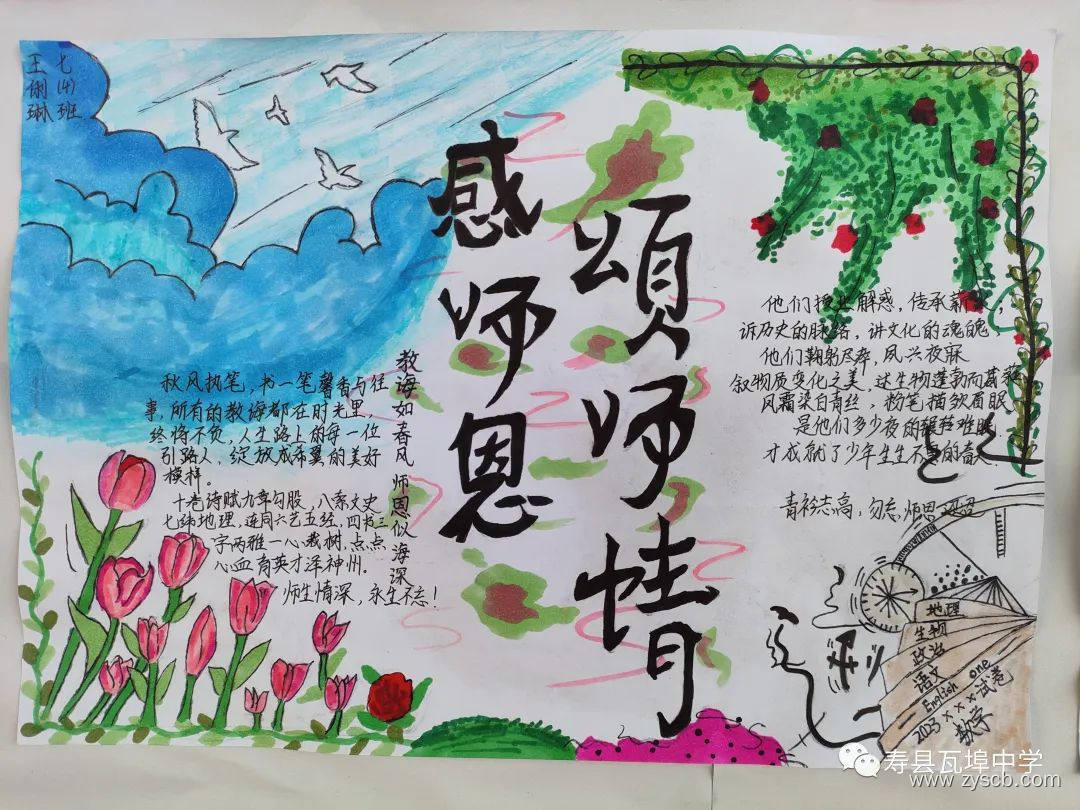 七(4)班
王俐琳
感师恩
颂师情
教海如春风 师恩似海深
秋风执笔，书一笔馨香与往
事，所有的教诲都在时光里，
终将不负，人生路上的每一位
引路人，绽放成希冀的美好
模样。
十卷诗赋九章勾股，八索文史
七纬地理，连同六艺五经，四书三
字两雅一心栽树，点点
心血育英才泽神州。
师生情深，永生不忘！
他们授业解惑，传承薪火，
诉历史的脉络，讲文化的魂魄
他们鞠躬尽瘁，夙兴夜寐
叙物质变化之美，述生物蓬勃而葳蕤
风霜染白青丝，粉笔描皱眉眼
是他们多少夜的辗转难眠
才成就了少年生生不息的春天
青衿志高，勿忘师恩
地理
生物
政治
语文
English one
2023×××试卷
数学
寿县瓦埠中学
www.zyscb.com